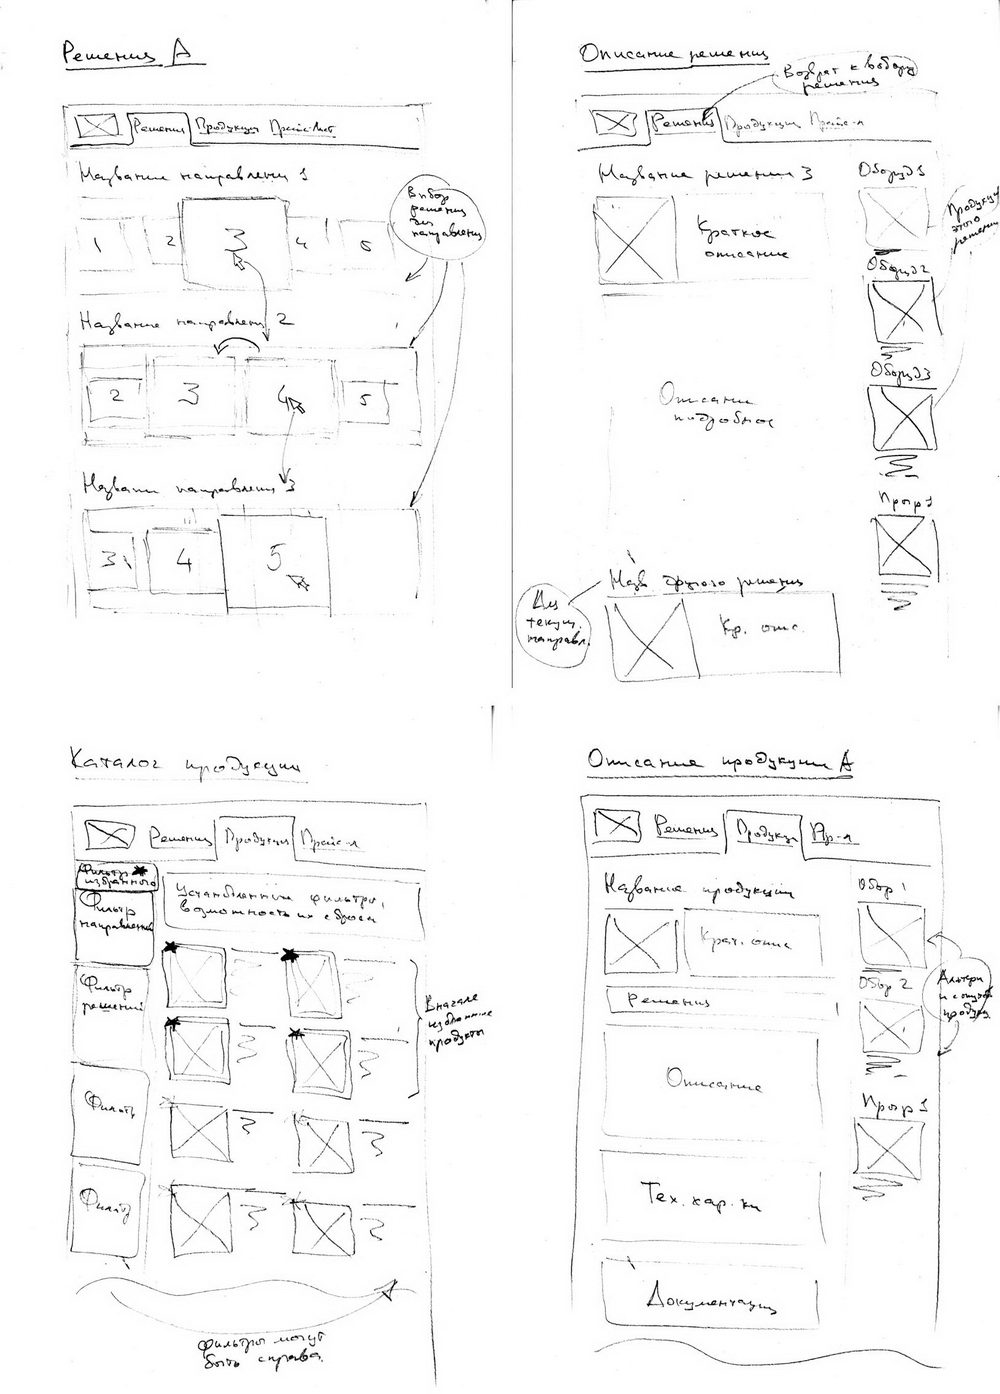 Решения А
Решения Продукция Прайс-лист
Название направления 1
Выбор
решения
для
направления
1 2 3 4 5
Название направления 2
2 3 4 5
Название направления 3
3 4 5
Описание решения
Возврат к выбору
решения
Решения Продукция Прайс-л
Название решения 3
Оборуд 1
Краткое
описание
Продукция
этого
решения
Оборуд 2
Оборуд 3
Описание
подробное
Прогр 1
Назв другого решения
Для
текущ.
направл.
Кр. опис.
Каталог продукции
Решения Продукция Прайс-л
Фильтр
избранного
Установленные фильтры,
возможность их сброса
Фильтр
направлений
Фильтр
решений
Вначале
избранные
продукты
Фильтр
Фильтр
Фильтры могут
быть справа.
Описание продукции А
Решения Продукц Пр-л
Название продукции
Обор 1
Крат. опис
Обор 2
Решения
Описание
Прогр 1
Тех. хар. ки
Документация